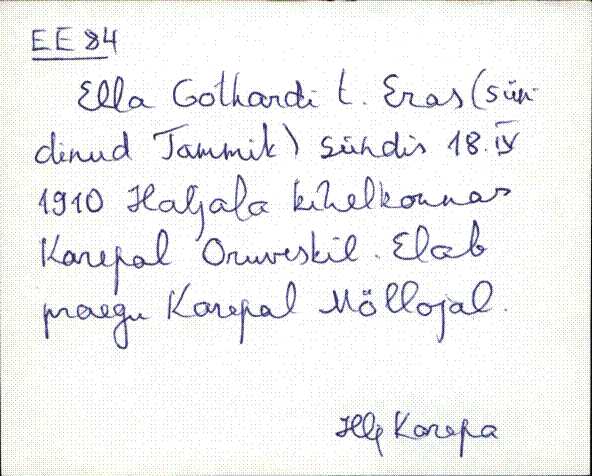 EE 84
Ella Gothardi t. Eras (sün-
dinud Tammik) sündis 18. IV
1910 Haljala kihelkonnas
Karepal Oruveskil. Elab
praegu Karepal Möllojal.
Hlj Karepa